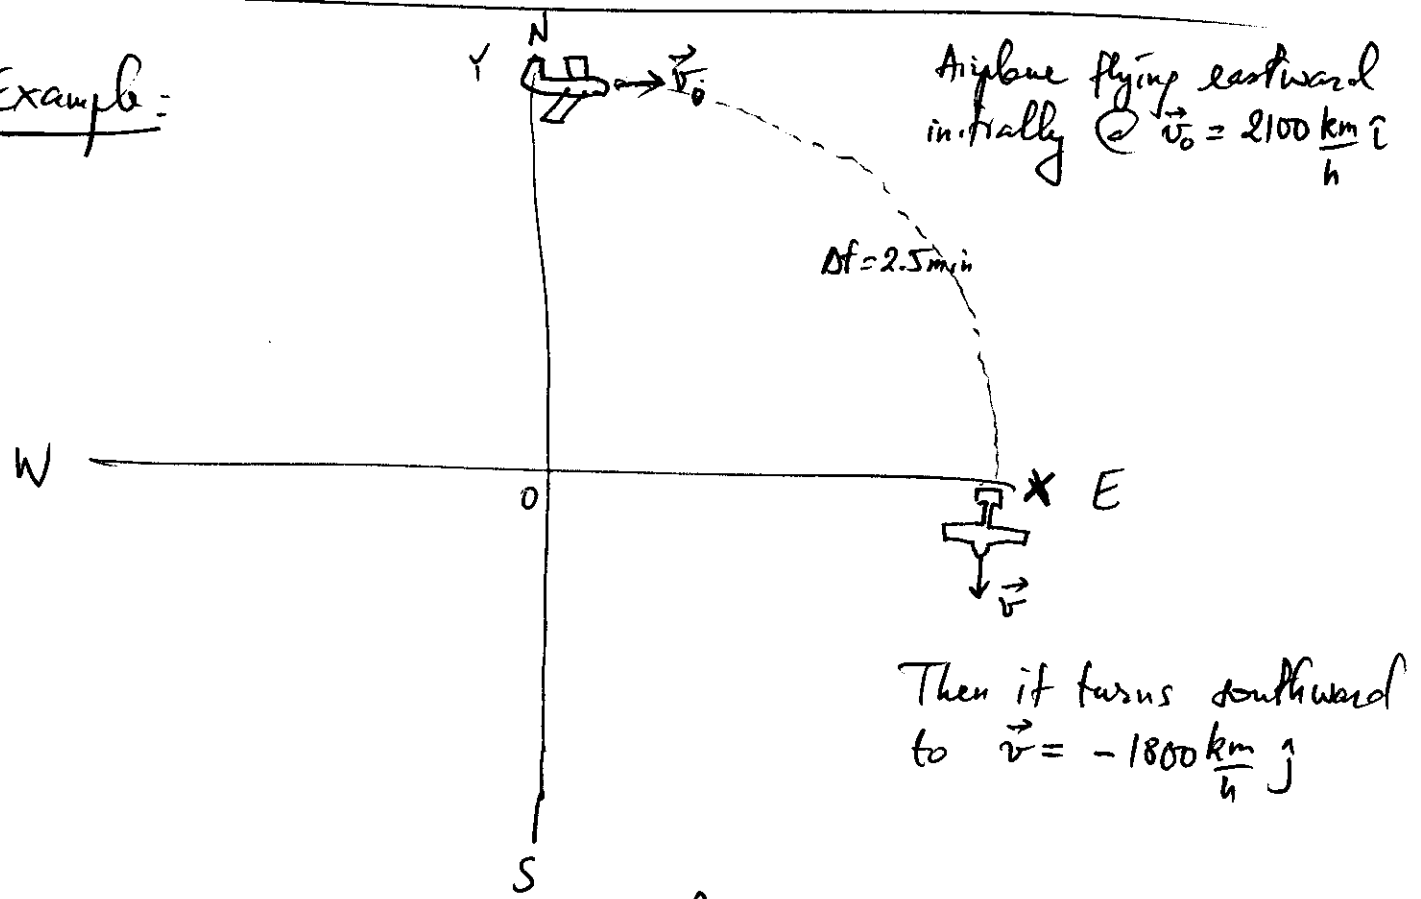 Example:
N
Y
v⃗₀
Airplane flying eastward
initially @ v⃗₀ = 2100 km/h î
Δt = 2.5 min
W
O
X E
v⃗
Then it turns southward
to v⃗ = -1800 km/h ĵ
S